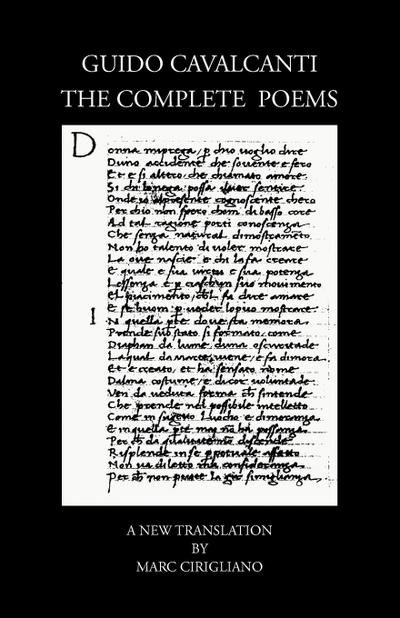 GUIDO CAVALCANTI
THE COMPLETE POEMS
Donna mi prega, p chio voglio dire
Duno accidente che sovente e fero
Et e si altro, che chiamato amore.
Si chi lo nega possa sentire.
Onde presente cognoscente chero
Per chio non spero chom di basso core
Ad tal ragione porti conoscenza
Che senza natural dimostrameto
Non ho talento di voler mostrare
La ove nascie e chi la fa creare
E quale e sua virtu e sua potenza
Lessenza e suo movimento
El piacimento, chl fa dire amare
E se huom p veder lo puo mostrare
In quella pte dove sta memora
Prende suo stato si formato, come
Diaphan da lume, duna oscuritade
La qual da marte, viene, e fa dimora
Et e creato, et ha sensato nome
Dalma costume, e di cor voluntade.
Ven da veduta forma ch sintende
Che prende nel possibile intelletto
Come in sugetto luocho e dimoranza
E in quella pte mai no ha possanza
Per ch da qualitate no discende
Risplende in se pptuale effetto
Non ha diletto ma consideranza
Per ch non puote la gir simiglianza
A NEW TRANSLATION
BY
MARC CIRIGLIANO